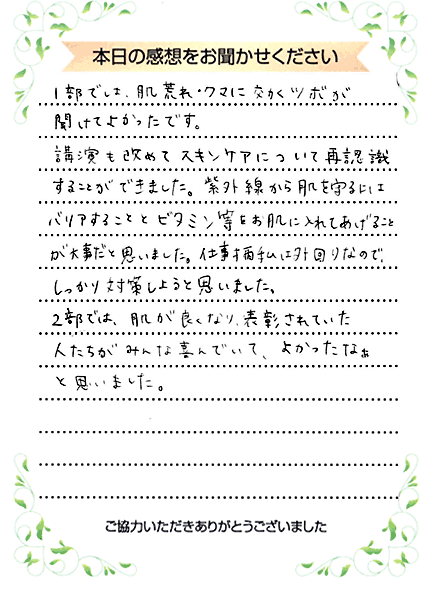 本日の感想をお聞かせください
1部では、肌荒れ・クマに効くツボが
聞けてよかったです。
講演も改めてスキンケアについて再認識
することができました。紫外線から肌を守るには
バリアすることとビタミン等をお肌に入れてあげること
が大事だと思いました。仕事柄私は外回りなので、
しっかり対策しようと思いました。
2部では、肌が良くなり、表彰されていた
人たちがみんな喜んでいて、よかったなぁ
と思いました。
ご協力いただきありがとうございました